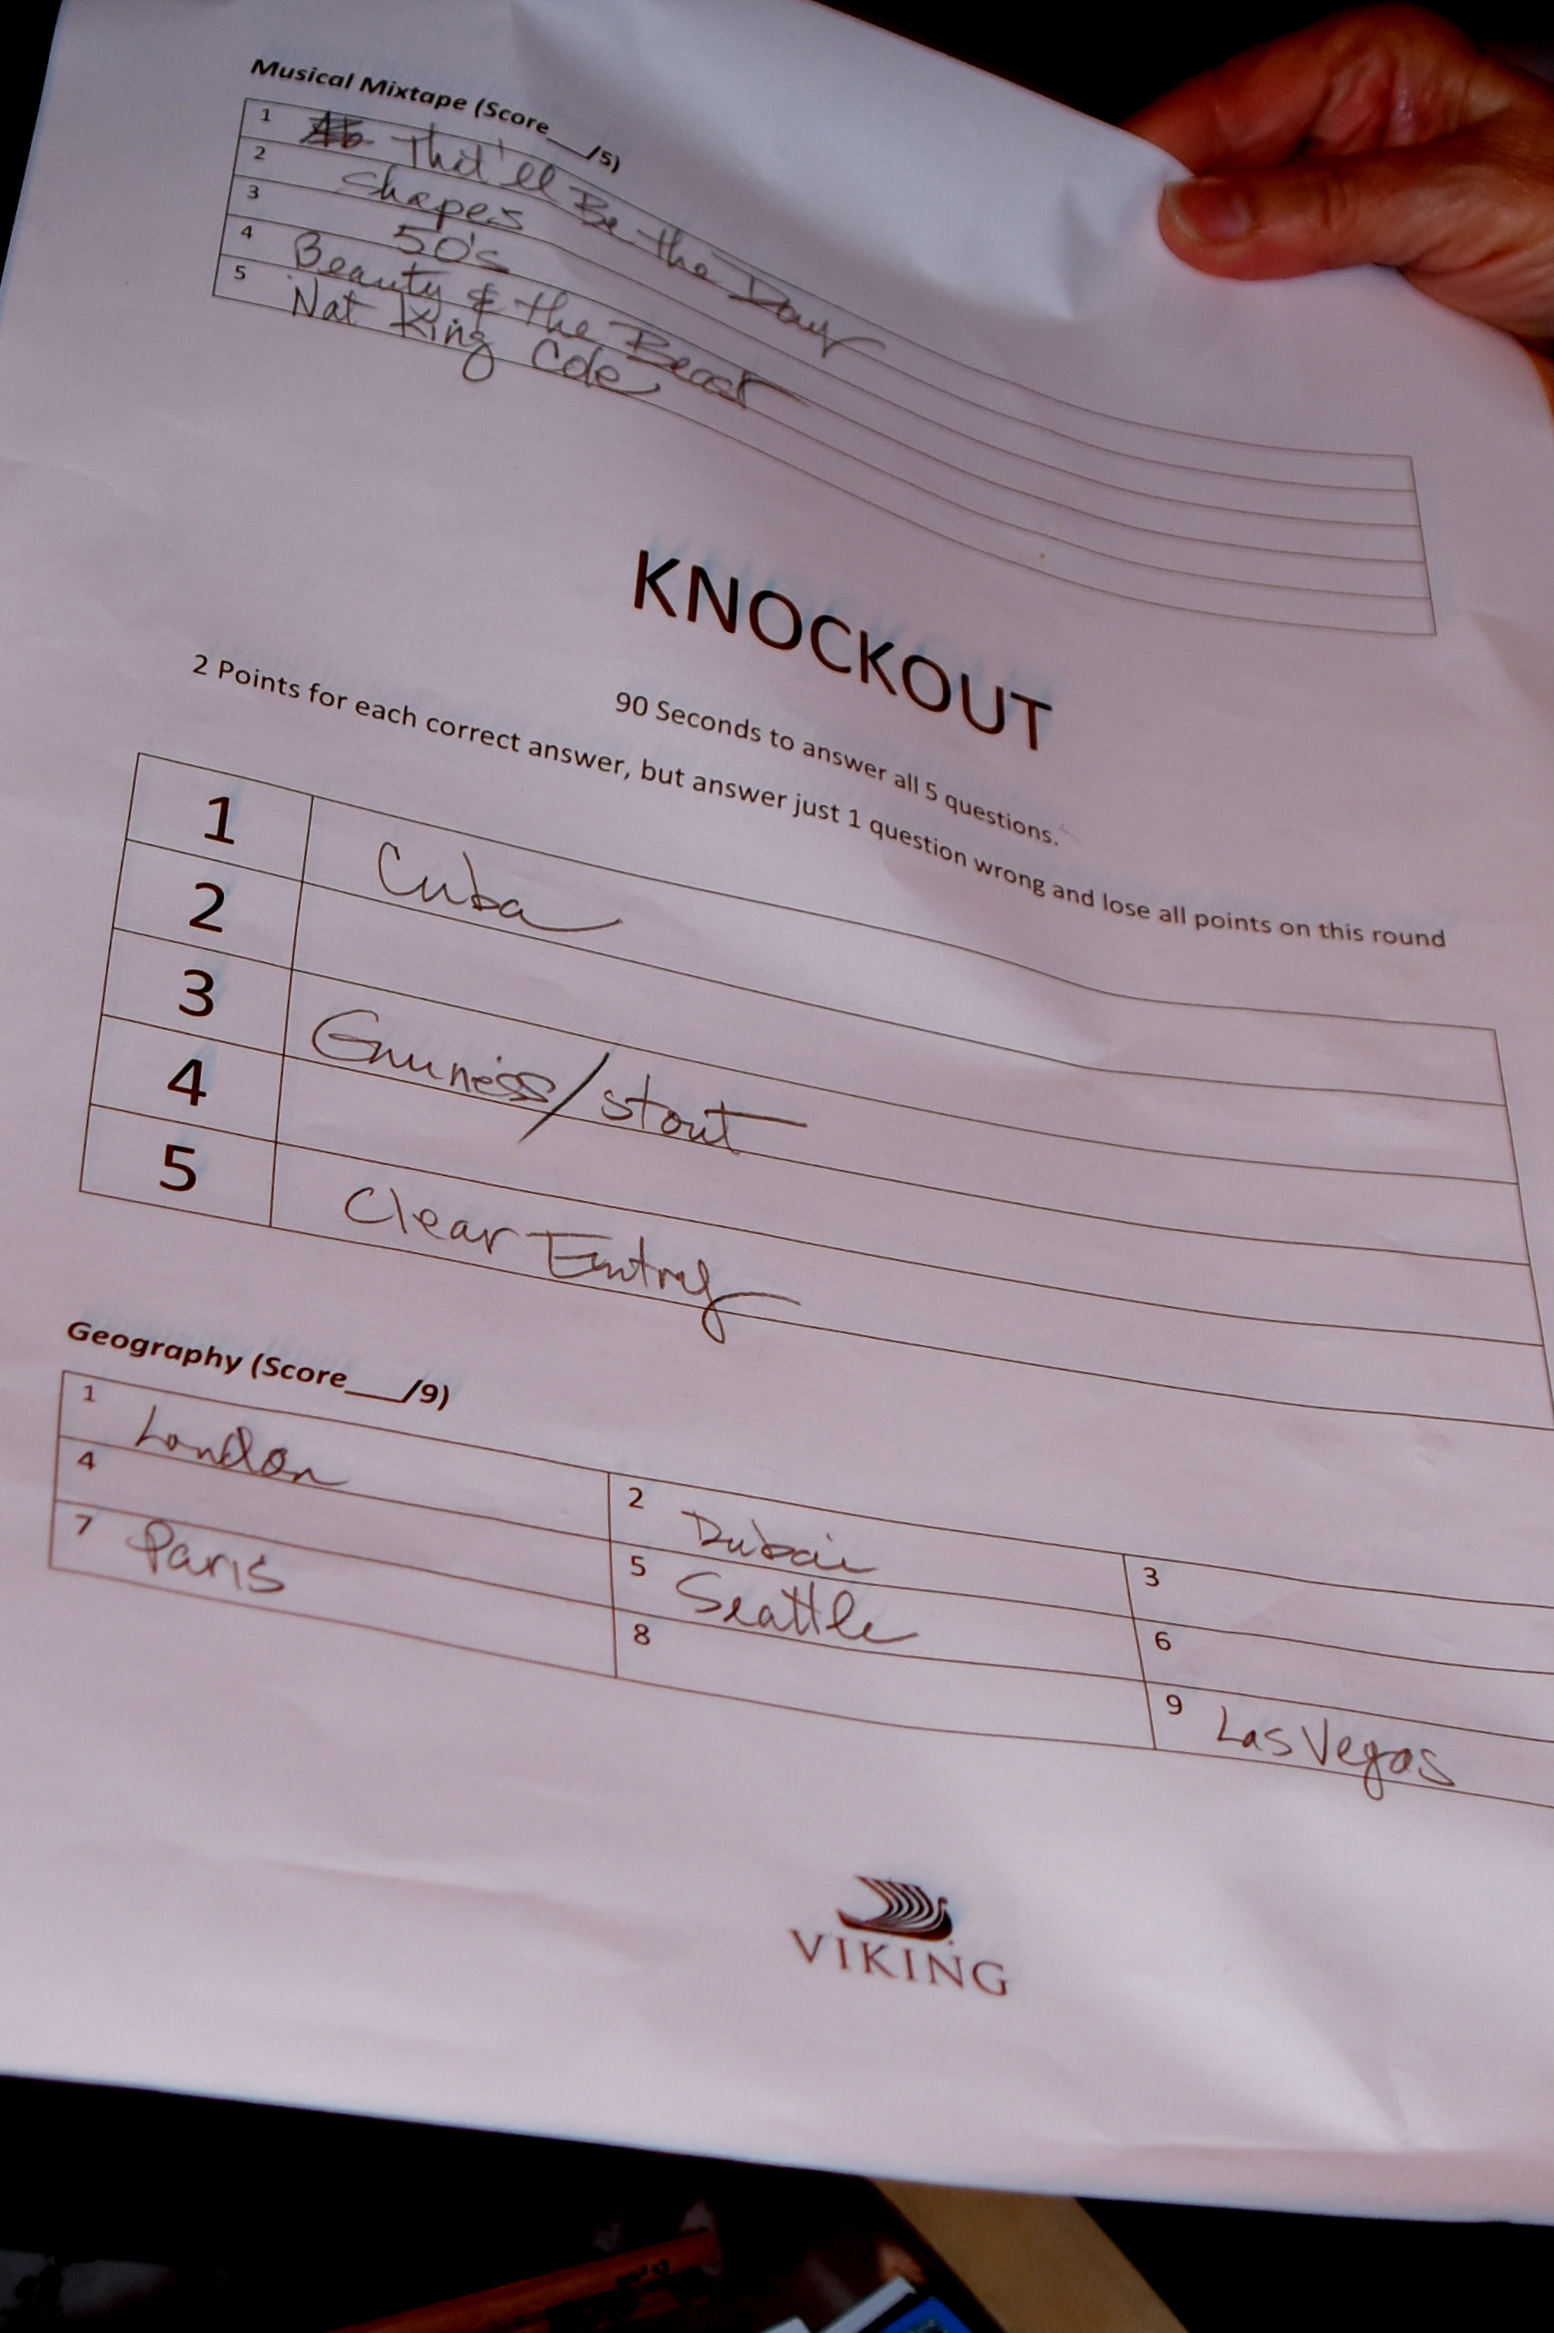 Musical Mixtape (Score___/5)
1 That'll Be the Day
2 Shapes
3 50's
4 Beauty & the Beast
5 Nat King Cole
KNOCKOUT
90 Seconds to answer all 5 questions.
2 Points for each correct answer, but answer just 1 question wrong and lose all points on this round
1 Cuba
2
3 Guuness/stout
4
5 Clear Entry
Geography (Score___/9)
1 London 2 Dubai 3
4 5 Seattle 6
7 Paris 8 9 Las Vegas
VIKING